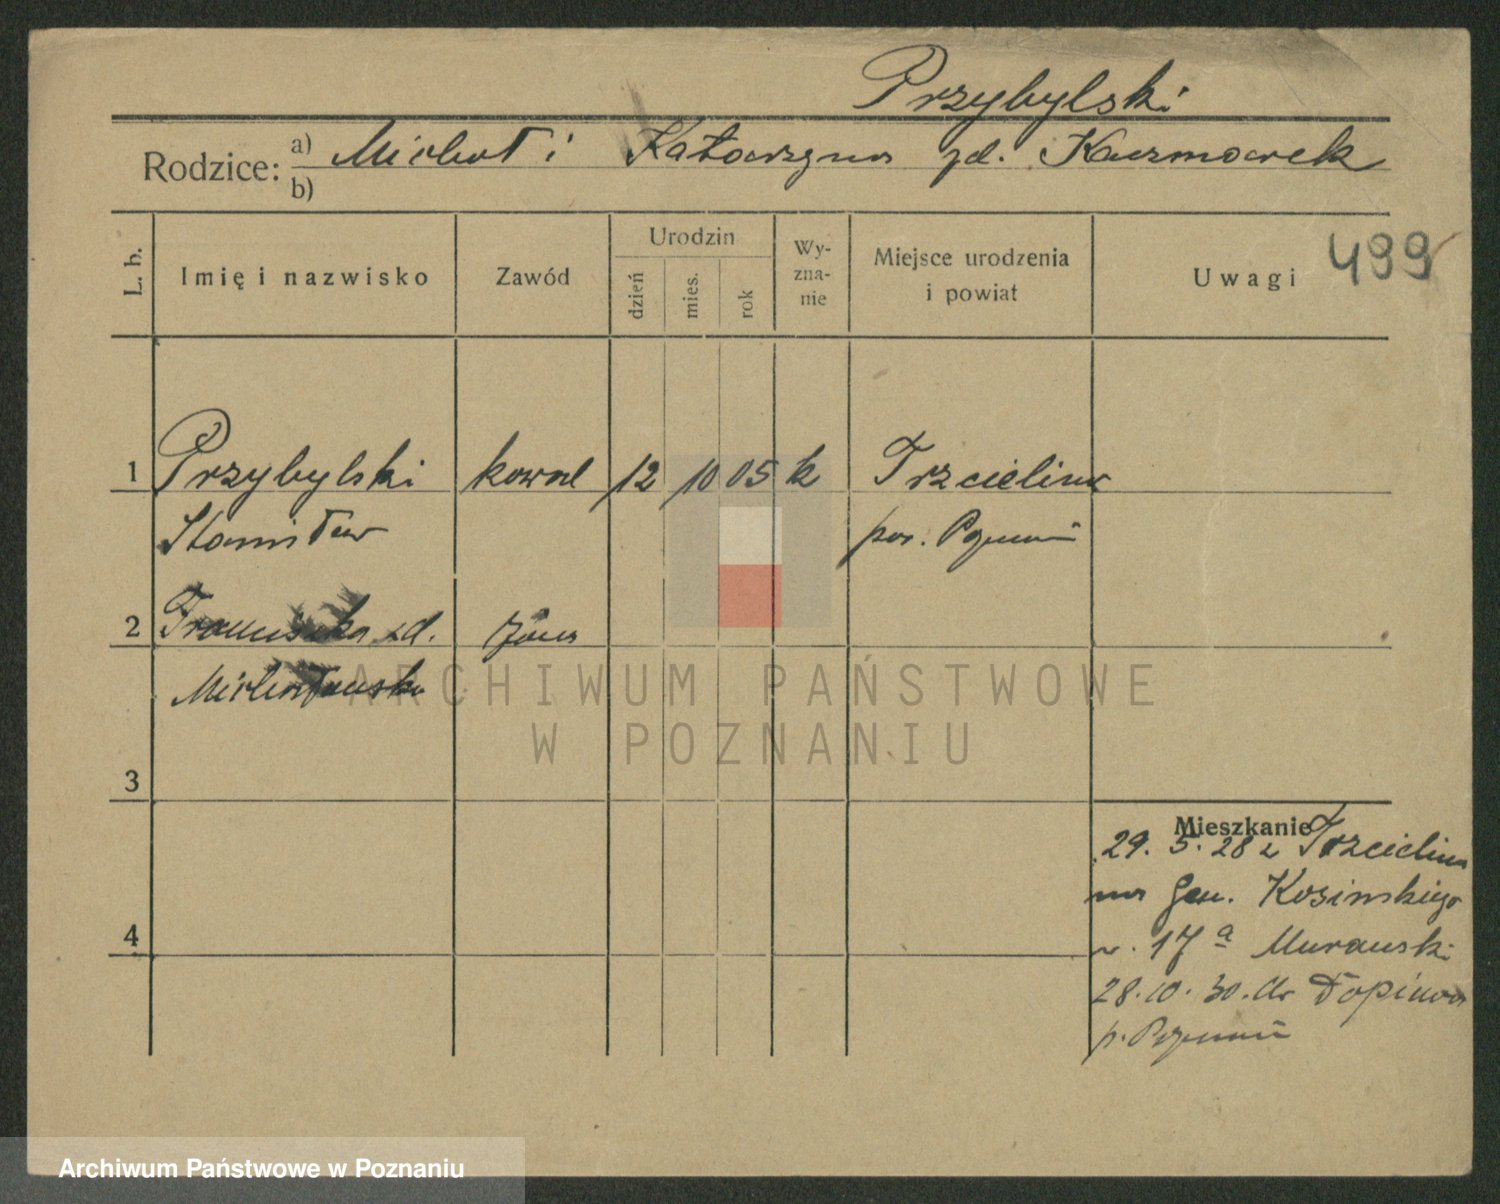 Przybylski
Rodzice: a) Michał i Katarzyna zd. Kaczmarek
b)
L. b.
Imię i nazwisko
Zawód
Urodzin
dzień
mies.
rok
Wy-
zna-
nie
Miejsce urodzenia
i powiat
Uwagi 499
1 Przybylski kowal 12 10 05 k Trzcielina
Stanisław pow. Poznań
2 Franciszka zd. żona
Michałowska
3
4
Mieszkanie
29. 5. 28 z Trzcielina
na Gen. Kosinskiego
17 a Murawski
28. 10. 30. do
p. Poznań
ARCHIWUM PAŃSTWOWE
W POZNANIU
Archiwum Państwowe w Poznaniu